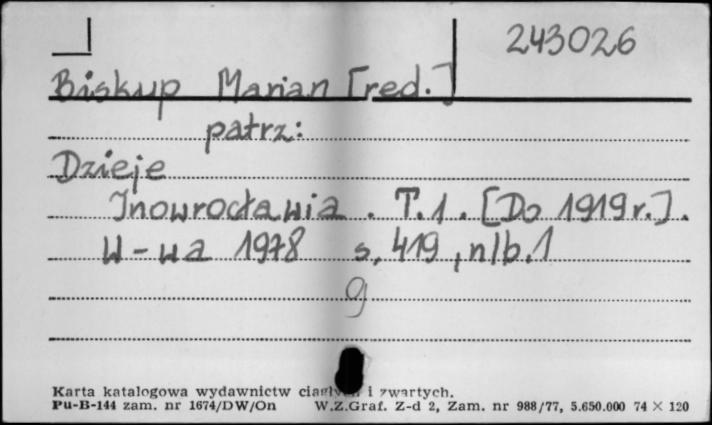 243026
Biskup Marian [red.]
patrz:
Dzieje
Inowrocławia . T.1 . [Do 1919 r.] .
W-wa 1978 s. 419, nlb. 1
g
Karta katalogowa wydawnictw ciągłych i zwartych.
Pu-B-144 zam. nr 1674/DW/On W.Z.Graf. Z-d 2, Zam. nr 988/77, 5.650.000 74 × 120